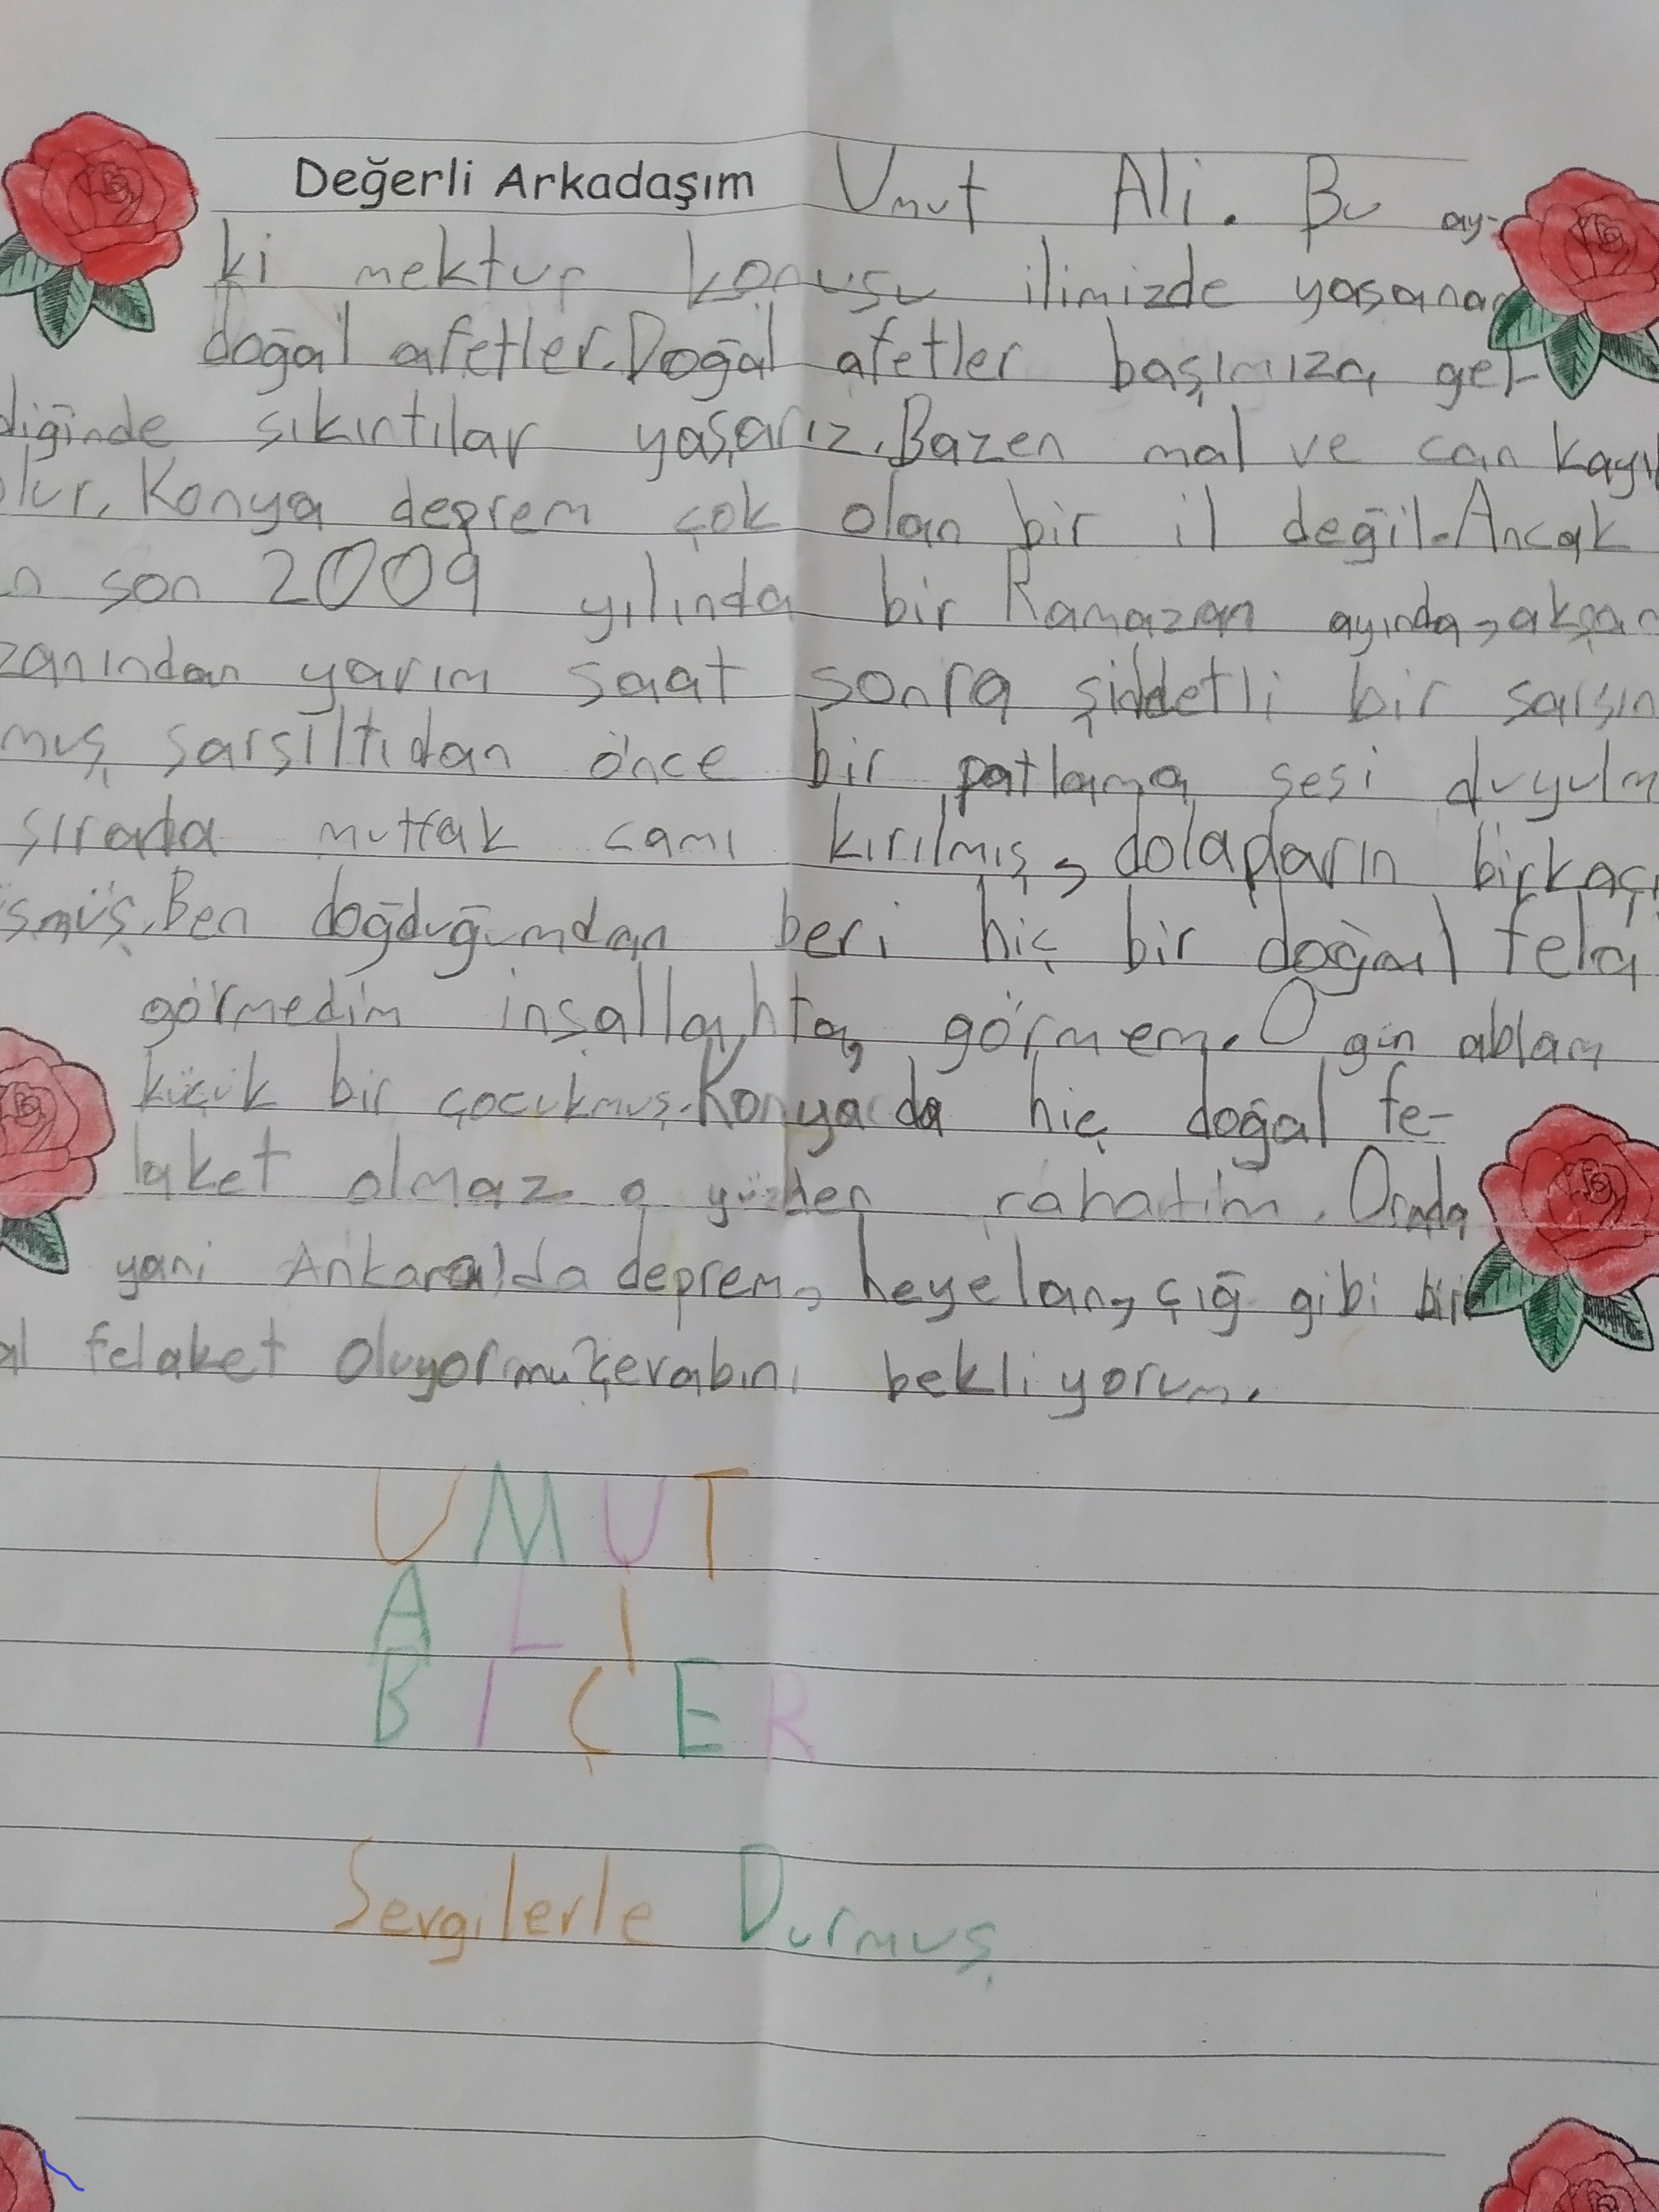 Değerli Arkadaşım Umut Ali. Bu ay-
ki mektup konusu ilimizde yaşanan
doğal afetler. Doğal afetler başımıza gel-
diğinde sıkıntılar yaşarız. Bazen mal ve can kayı
olur. Konya deprem çok olan bir il değil. Ancak
n son 2009 yılında bir Ramazan ayında, akşam
zanından yarım saat sonra şiddetli bir sarsın
muş sarsıltıdan önce bir patlama sesi duyulm
sırada mutfak camı kırılmış, dolapların birkaçı
üşmüş. Ben doğduğumdan beri hiç bir doğal fela
görmedim inşallahta görmem. O gün ablam
küçük bir çocukmuş. Konya da hiç doğal fe-
laket olmaz o yüzden rahatım. Orada
yani Ankara'da deprem, heyelan, çığ gibi bir
al felaket oluyormu? Cevabını bekliyorum.
UMUT
ALI
BIÇER
Sevgilerle Durmuş